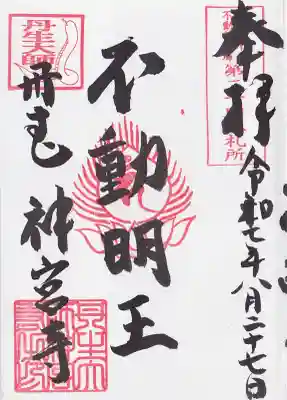 奉拝
令和七年八月二十七日
不動明王
丹生大師
丹生
神宮寺